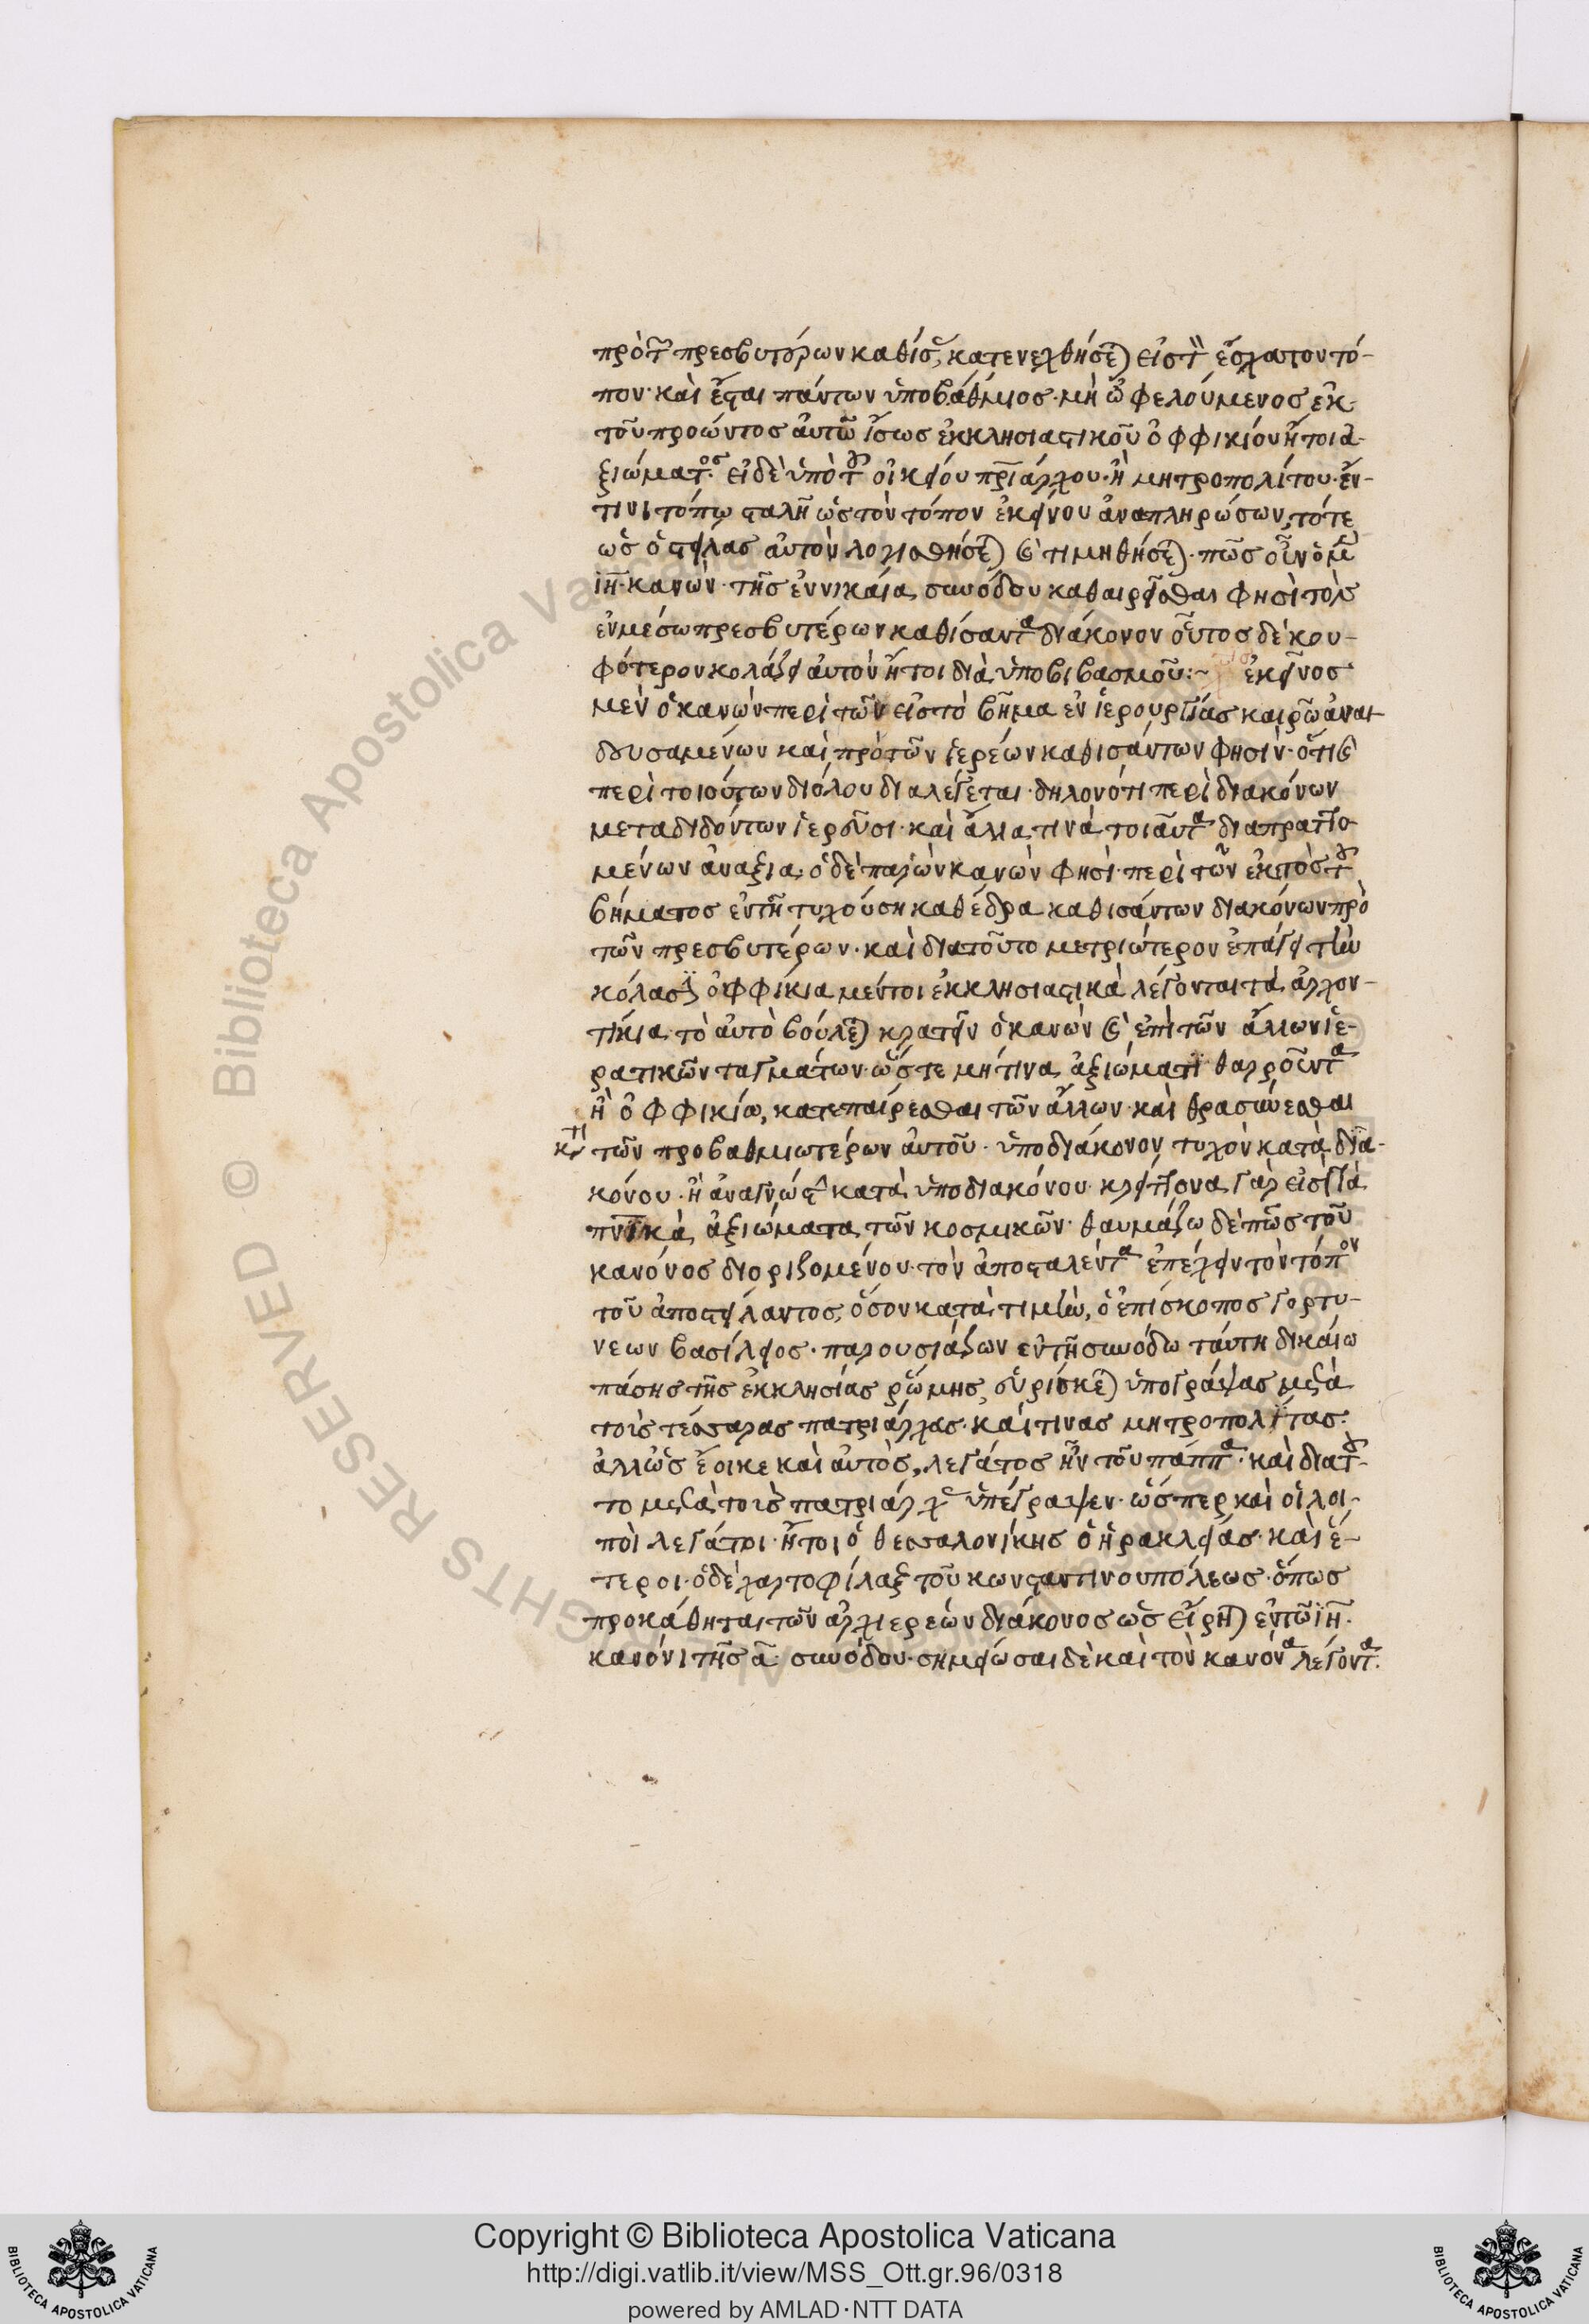 πρὸ τῶν πρεσβυτέρων καθίσας, κατενεχθήσεται εἰς τὸν ἔσχατον τό-
πον· καὶ ἔσται πάντων ὑποβάθμιος· μὴ ὠφελούμενος ἐκ
τοῦ προσόντος αὐτῶ ἴσως ἐκκλησιαστικοῦ ὀφφικίου ἤτοι ἀ-
ξιώματος· εἰ δὲ ὑπὸ τοῦ οἰκείου πατριάρχου· ἢ μητροπολίτου· ἔν
τινι τόπω σταλῆ ὡς τὸν τόπον ἐκείνου ἀναπληρώσων, τότε
ὡς ὁ στείλας αὐτὸν λογισθήσεται καὶ τιμηθήσεται· πῶς οὖν ὁ μὲν
ιη· κανὼν τῆς ἐν νικαία συνόδου καθαιρεῖσθαι φησὶ τὸν
ἐν μέσω πρεσβυτέρων καθίσαντα διάκονον οὗτος δὲ κου-
φότερον κολάζει αὐτὸν ἤτοι διὰ ὑποβιβασμοῦ:~ ἐκεῖνος
μὲν ὁ κανὼν περὶ τῶν εἰς τὸ βῆμα ἐν ἱερουργίας καιρῶ ἀναι-
δευσαμένων καὶ πρὸ τῶν ἱερέων καθισάντων φησίν· ὅτι καὶ
περὶ τοιούτων διόλου διαλέγεται· δηλονότι περὶ διακόνων
μεταδιδόντων ἱερεῦσι· καὶ ἄλλα τινὰ τοιαῦτα διαπραττο-
μένων ἀνάξια· ὁ δὲ παρὼν κανὼν φησὶ περὶ τῶν ἐκτὸς τοῦ
βήματος ἐν τῆ τυχούση καθέδρα καθισάντων διακόνων πρὸ
τῶν πρεσβυτέρων· καὶ διατοῦτο μετριώτερον ἐπάγει τὴν
κόλασιν ὀφφίκια μέντοι ἐκκλησιαστικὰ λέγονται τὰ ἀρχον-
τίκια· τὸ αὐτὸ βούλεται κρατεῖν ὁ κανὼν καὶ ἐπὶ τῶν ἄλλων ἱε-
ρατικῶν ταγμάτων· ὥστε μή τινα ἀξιώματι θαρροῦντα
ἢ ὀφφικίω, κατεπαίρεσθαι τῶν ἄλλων· καὶ θρασύνεσθαι
τῶν προβαθμιωτέρων αὐτοῦ· ὑποδιάκονον τυχὸν κατὰ δια-
κόνου· ἢ ἀναγνώστην κατὰ ὑποδιακόνου· κρείττονα γάρ εἰσι τὰ
πνευματικὰ ἀξιώματα τῶν κοσμικῶν· θαυμάζω δὲ πῶς τοῦ
κανόνος διοριζομένου· τὸν ἀποσταλέντα ἐπέχειν τὸν τόπον
τοῦ ἀποστείλαντος, ὅσον κατὰ τιμὴν, ὁ ἐπίσκοπος γορτυ-
νέων βασίλειος· παρουσιάζων ἐν τῆ συνόδω ταύτη δικαίω
πάσης τῆς ἐκκλησίας ῥώμης, εὑρίσκεται ὑπογράψας μετὰ
τοὺς τέσσαρας πατριάρχας· καί τινας μητροπολίτας·
ἀλλ' ὡς ἔοικε καὶ αὐτὸς, λεγάτος ἦν τοῦ πάππα· καὶ διατοῦ-
το μετὰ τοὺς πατριάρχας ὑπέγραψεν· ὥσπερ καὶ οἱ λοι-
ποὶ λεγάτοι· ἤτοι ὁ θεσσαλονίκης ὁ ἡρακλείας· καὶ ἕ-
τεροι· ὁ δὲ χαρτοφύλαξ τοῦ κωνσταντινουπόλεως· ὅπως
προκάθηται τῶν ἀρχιερέων διάκονος ὡς εἴρηται ἐν τῶ ιη·
κανόνι τῆς α συνόδου· σημείωσαι δὲ καὶ τὸν κανόνα λέγοντα·
Copyright © Biblioteca Apostolica Vaticana
http://digi.vatlib.it/view/MSS_Ott.gr.96/0318
powered by AMLAD·NTT DATA